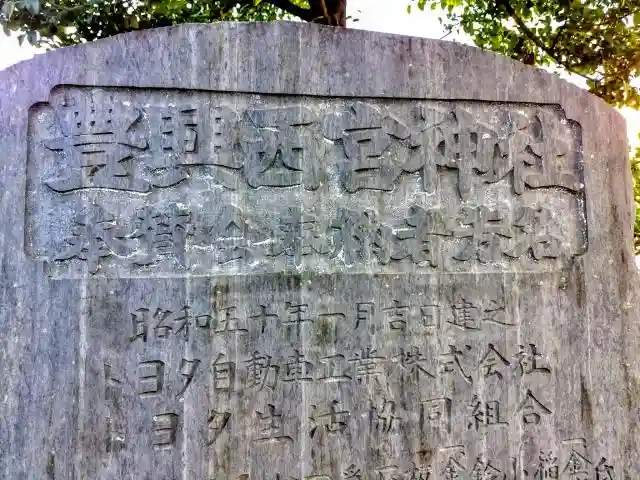 豊興西宮神社
奉賛会奉納者芳名
昭和五十年一月吉日建之
トヨタ自動車工業株式会社
トヨタ生活協同組合